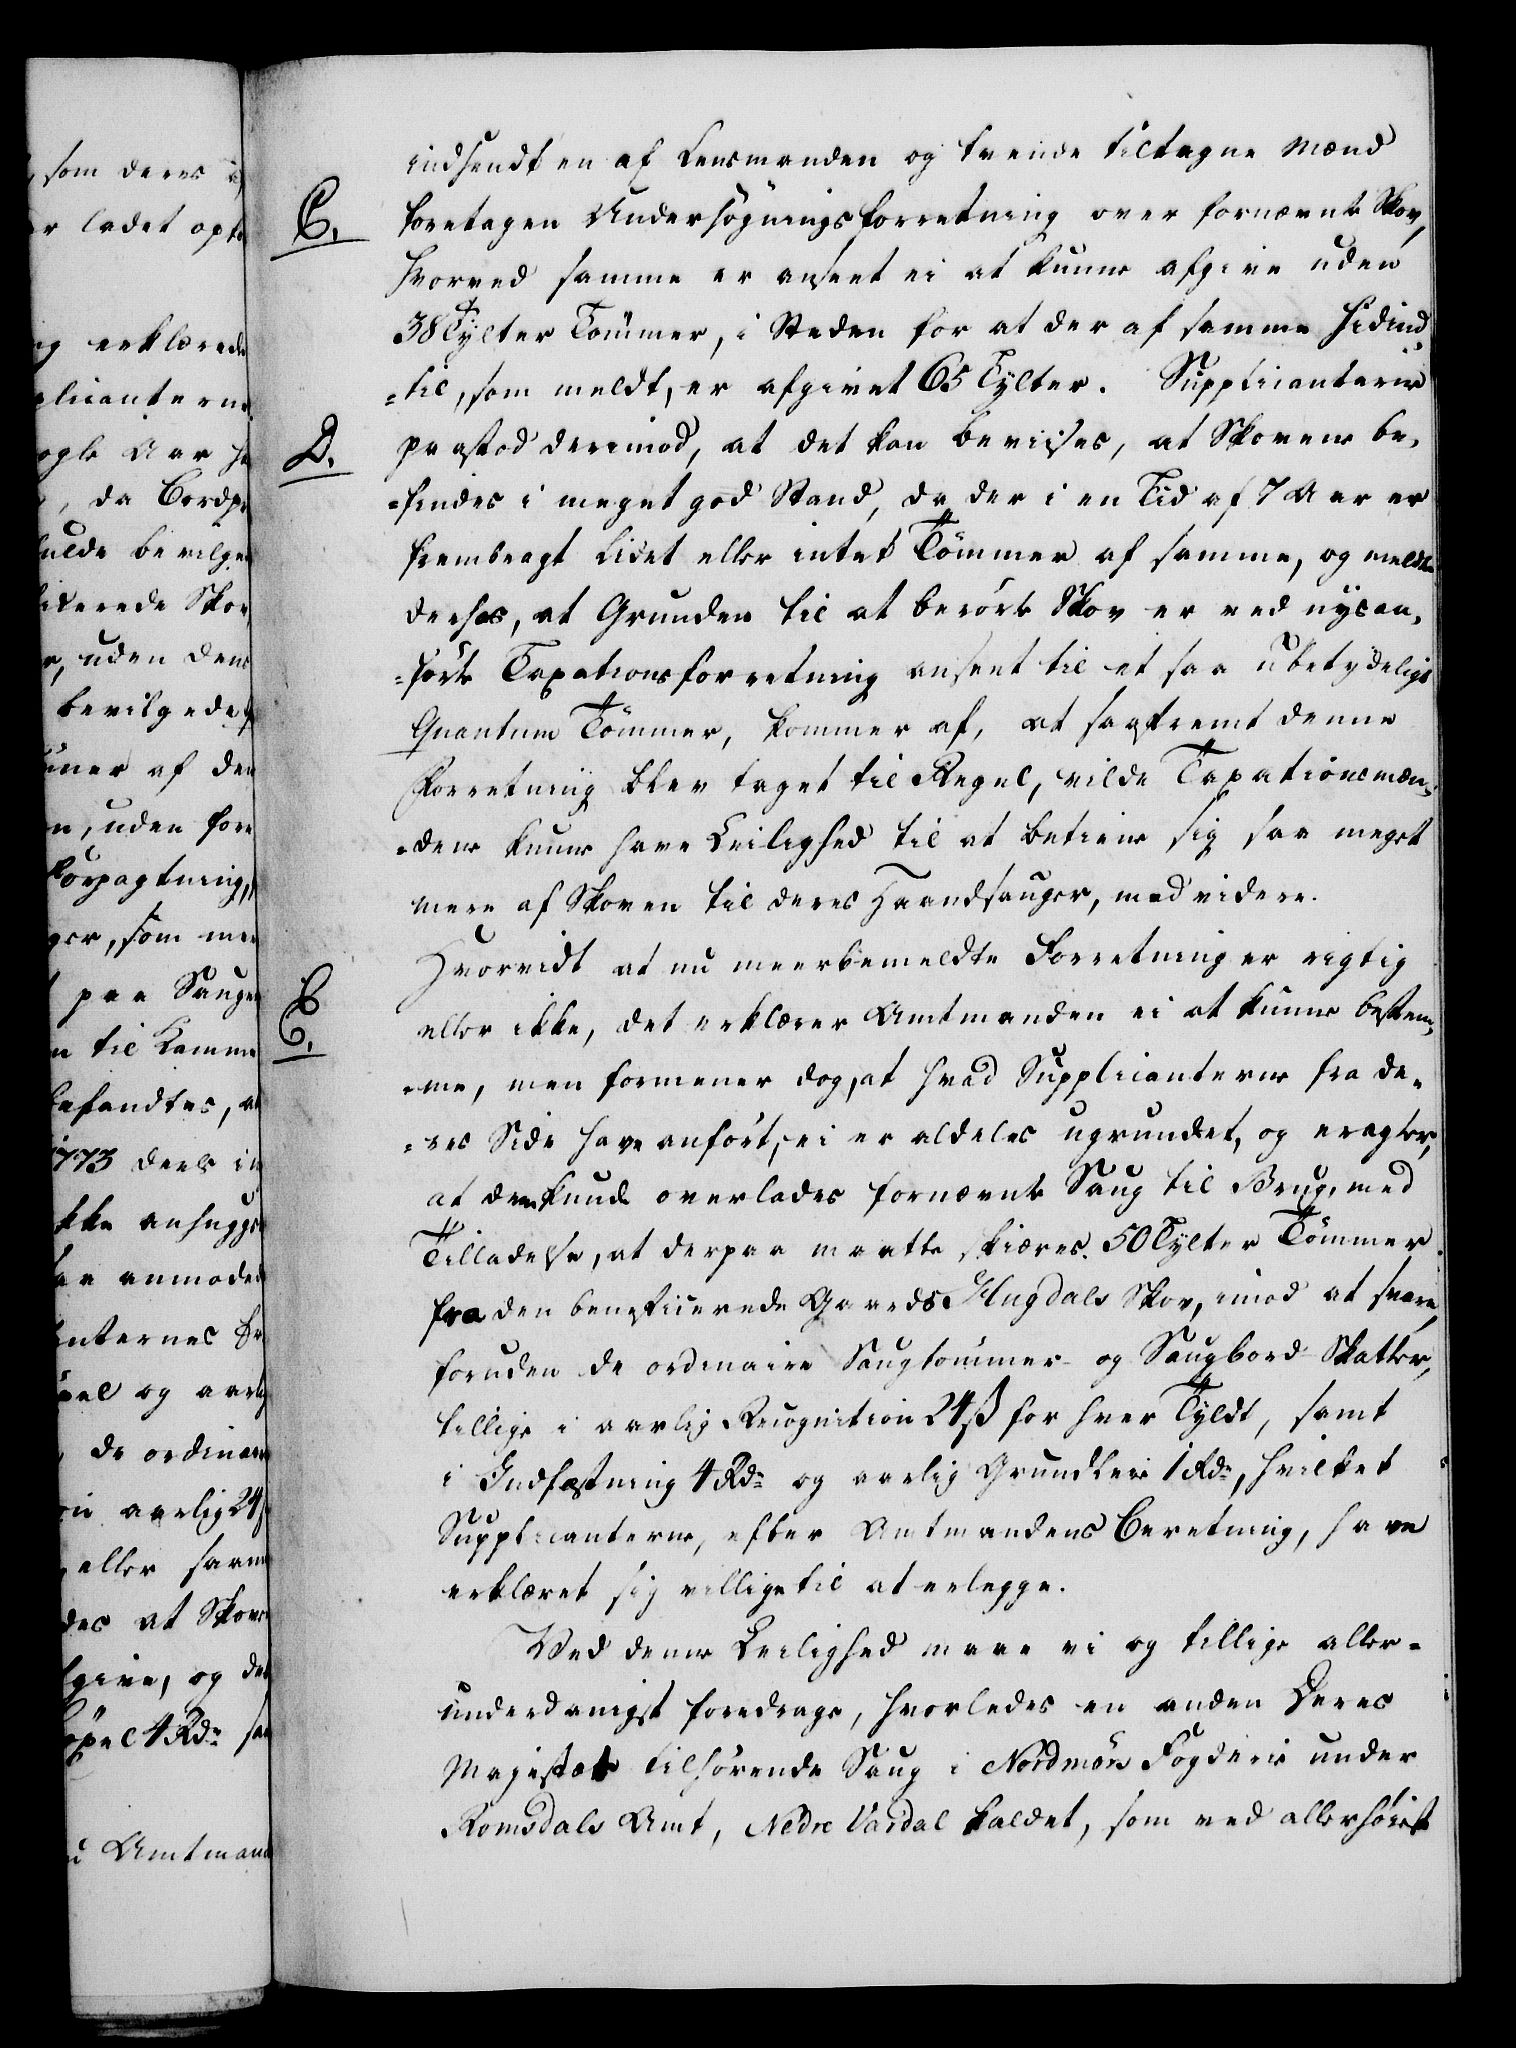 som deres i
r ladet opt
ng erklærede
plicanterne
ogle Aar ha
, da Bordpr
fulde bevilges
icerede Skov
r, uden dens
bevilgede
iner af den
n, uden fore
Forpagtning,
ger, som me
paa Saugen
n til Kamme
befandtes, at
1773 deels i
kke anhugge
aa anmodes
anternes
pel og aarl
de ordinair
on aarlig 24
eller saam
des at Skov
fgive, og det
öpel 4 Rdr. sa
Amtmand
indsendt en af Lensmanden og tvende tiltagne Mænd
C. foretagen Undersögningsforretning over fornævnte Skov,
hvorved samme er anseet ei at kunne afgive uden
38 Tylter Tömmer, i Steden for at der af samme hidind-
-til, som meldt, er afgivet 65 Tylter. Supplicanterne
D. paastod derimod, at det kan bevises, at Skovene be-
-findes i meget god Stand, da der i en Tid af 7 Aar er
frembragt lidet eller intet Tömmer af samme, og meldte
derhos, at Grunden til at berörte Skov er ved nysan-
-förte Taxationsforretning anseet til et saa ubetydeligt
Quantum Tömmer, kommer af, at saafremt denne
Forretning blev taget til Regel, vilde Taxationsmæn-
-dene kunne have Leilighed til at betiene sig saa meget
mere af Skoven til deres Haandsauger, med videre.
Hvorvidt at nu meerbemeldte Forretning er rigtig
E. eller ikke, det erklærer Amtmanden ei at kunne bestem-
-me, men formener dog, at hvad Supplicanterne fra de-
-res Side have anfört, ei er aldeles ugrundet, og eragter,
at dem kunde overlades fornævnte Saug til Brug, med
Tilladelse, at derpaa maatte skiæres 50 Tylter Tömmer
fra den beneficerede Gaards Hugdals Skov, imod at svare,
foruden de ordinaire Saugtömmer- og Saugbord-Skatter,
tillige i aarlig Recognition 24 ß for hver Tyldt, samt
i Indfæstning 4 Rdr. og aarlig Grundleie 1 Rdr., hvilket
Supplicanterne, efter Amtmandens Beretning, have
erklæret sig villige til at erlegge.
Ved denne Leilighed maae vi og tillige aller-
underdanigst foredrage, hvorledes en anden Deres
Majestæt tilhörende Saug i Nordmörs Fogderie under
Romsdals Amt, Nedre Vaidal kaldet, som ved allerhöiest